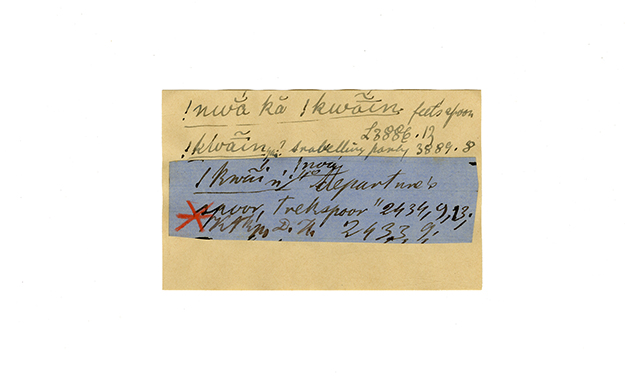 !nwā kā !kwāin, feet's spoor
L3886.12
!kwāin, ? travelling party 3889.8
!nwa
!kwāi departure's
spoor, trekspoor" 2434, 9, 13.
D. H. 2433, 9.